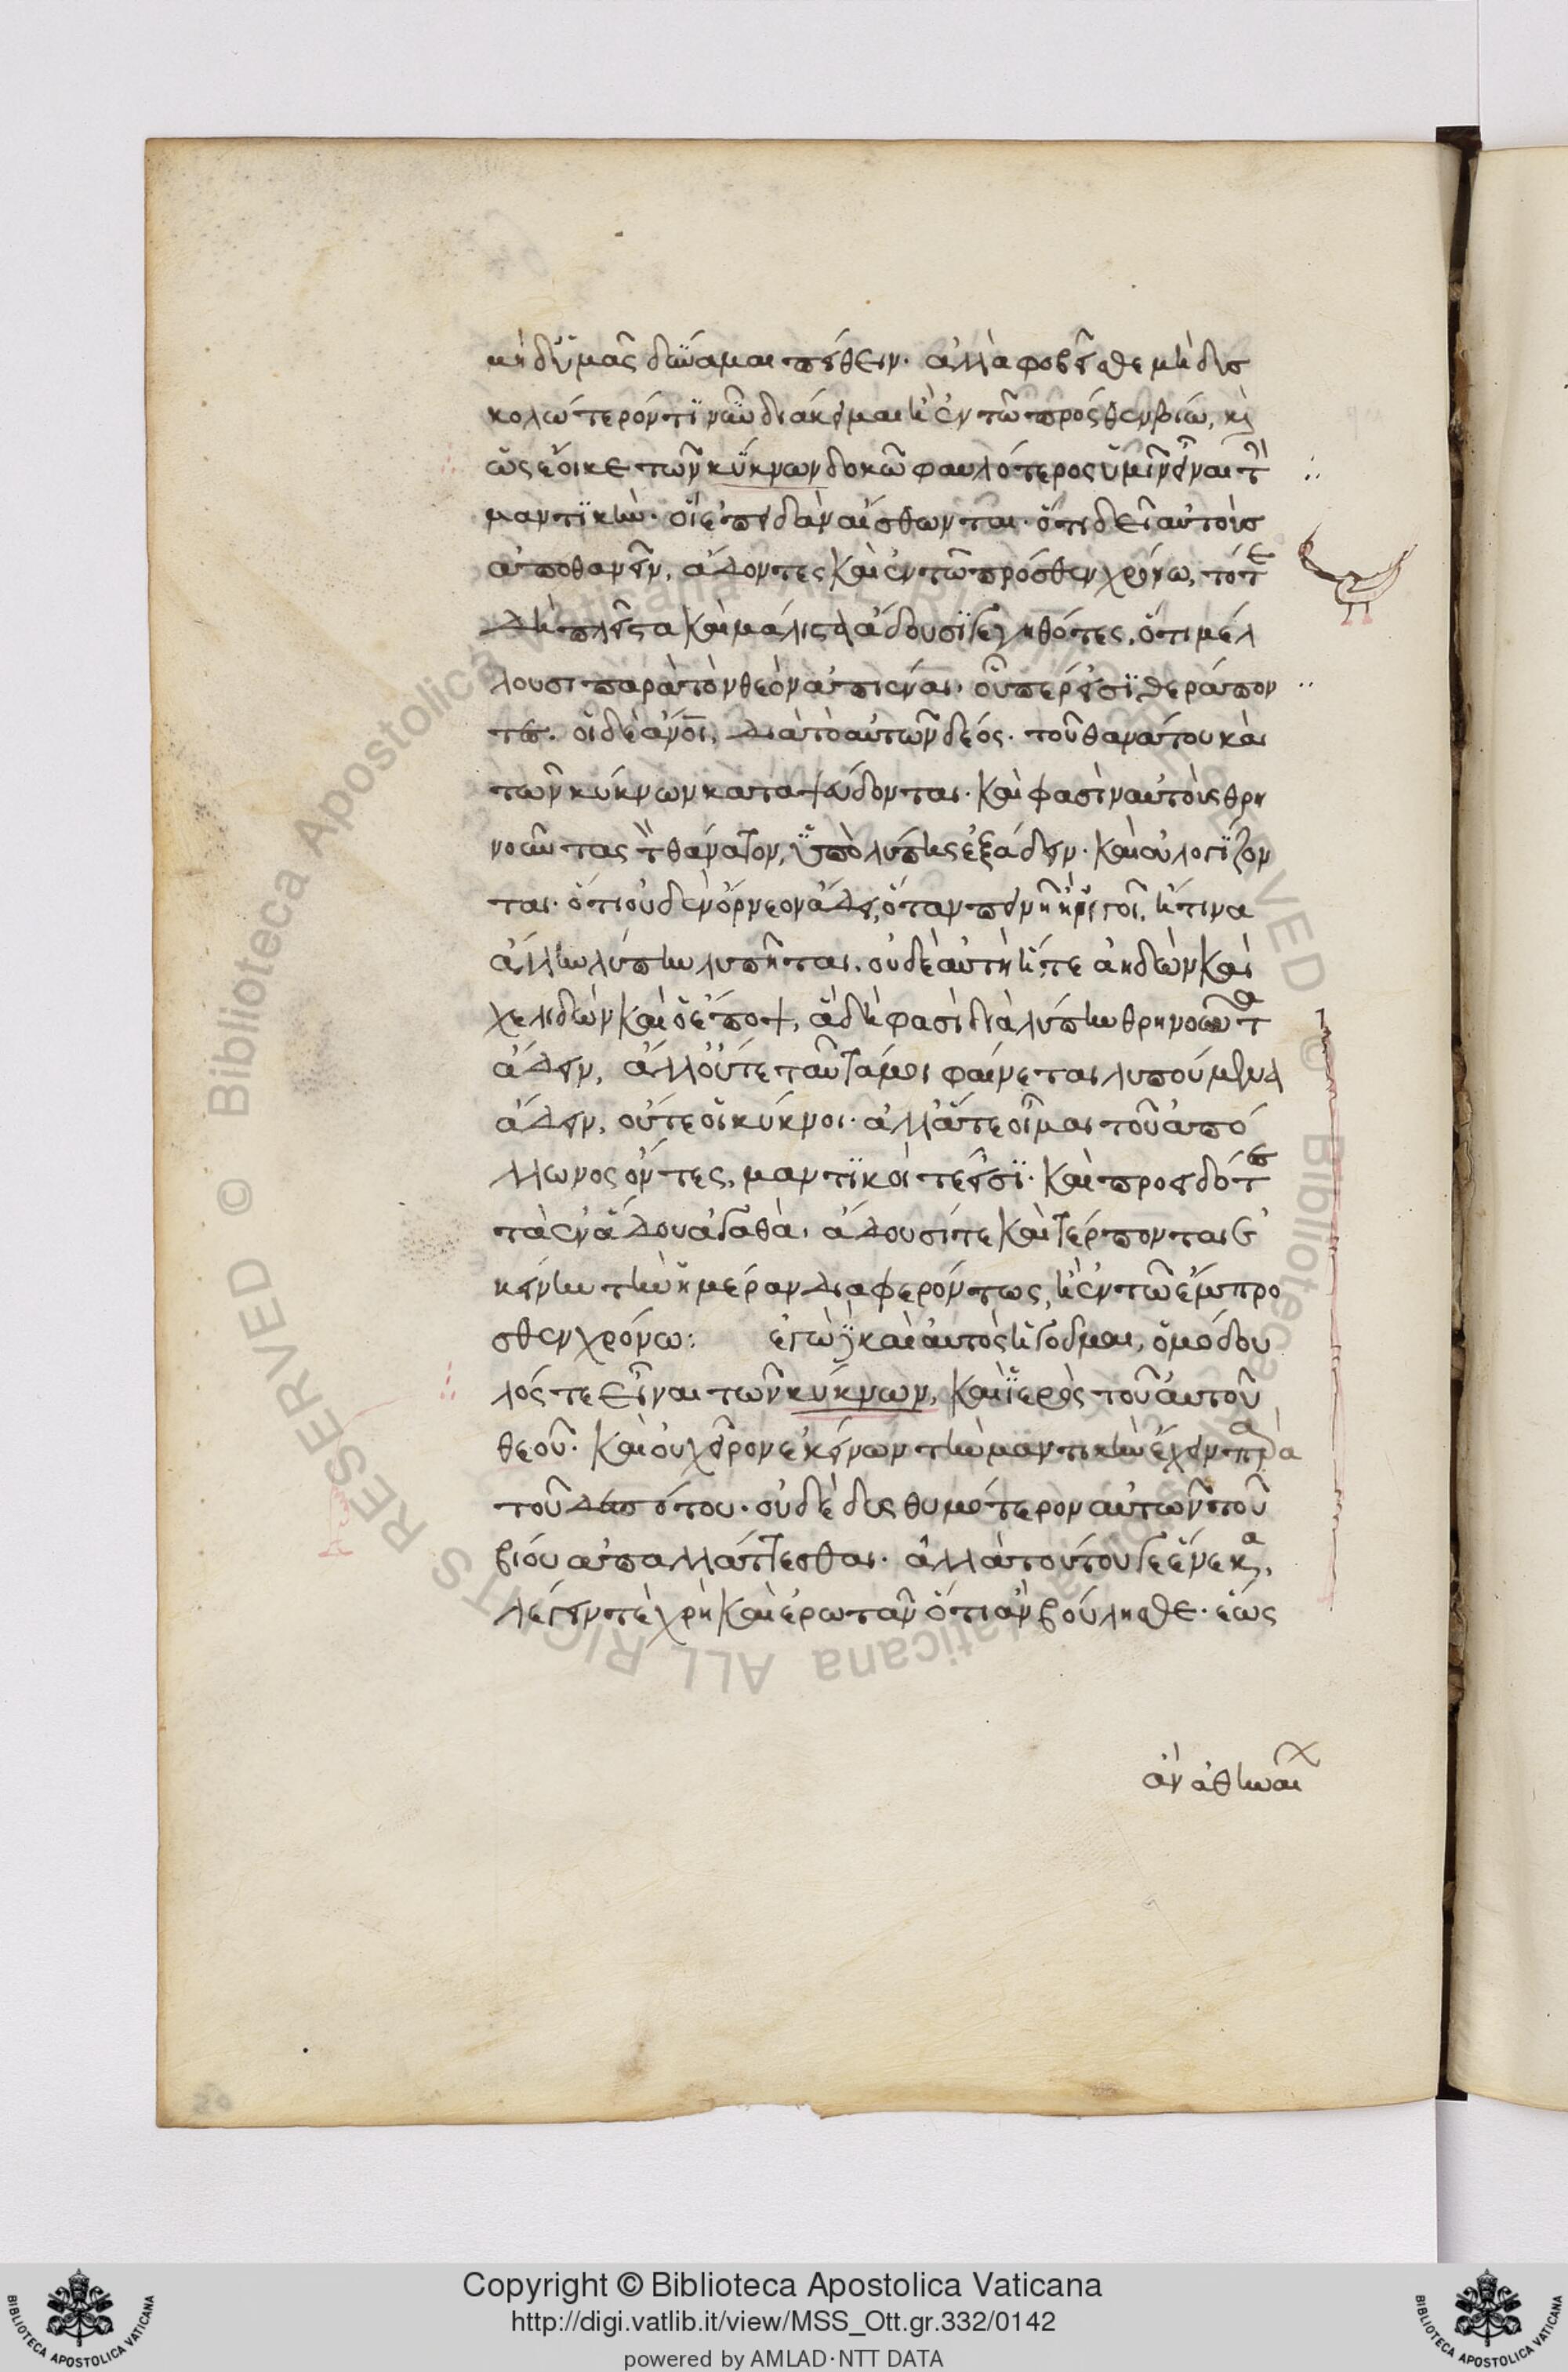 μὴδ ὑμᾶς δύναμαι πείθειν. ἀλλὰ φοβεῖσθε μὴ δυσ
κολώτερόν τι νῦν διάκειμαι ἢ ἐν τῷ πρόσθεν βίῳ, κὶ
ὡς ἔοικε τῶν κύκνων δοκῶ φαυλότερος ὑμῖν εἶναι τὴ
μαντικὴν. οἳ ἐπειδὰν αἴσθωνται. ὅτι δεῖ αὐτοὺσ
ἀποθανεῖν, ἄδοντες καὶ ἐν τῷ πρόσθεν χρόνω, τότε
δὴ πλεῖστα καὶ μάλιστα ἄδουσι γεγηθότες, ὅτι μέλ
λουσι παρὰ τὸν θεὸν ἀπιέναι. οὗπέρ εἰσι θεράπον
τες. οἱ δὲ ἄνοι, διὰ τὸ αὑτῶν δέος. τοῦ θανάτου καὶ
τῶν κύκνων καταψεύδονται. καὶ φασὶν αὐτοὺς θρη
νοῦντας τὸν θάνατον, ὑπὸ λύπης ἐξάδειν. καὶ οὐ λογίζον
ται. ὅτι οὐδὲν ὄρνεον ἄδει, ὅταν πεινῆ ἢ ῥιγοῖ, ἤ τινα
ἄλλην λύπην λυπῆται. οὐδὲ αὐτὴ ἥ τε ἀηδὼν καὶ
χελιδὼν καὶ ὁ ἔποψ, ἃ δή φασι διὰ λύπην θρηνοῦντα
ἄδειν, ἀλλ οὔτε ταῦτά μοι φαίνεται λυπούμενα
ἄδειν, οὔτε οἱ κύκνοι. ἀλλ ἅτε οἶμαι τοῦ ἀπό
λλωνος ὄντες, μαντικοί τέ εἰσι. καὶ προειδότες
τὰ ἐν ἅδου ἀγαθὰ, ἄδουσί τε καὶ τέρπονται ἐ
κείνην τὴν ἡμέραν διαφερόντως, ἢ ἐν τῷ ἔμπρο
σθεν χρόνω: ἐγὼ δὲ καὶ αὐτὸς ἡγοῦμαι, ὁμόδου
λός τε εἶναι τῶν κύκνων, καὶ ἱερὸς τοῦ αὐτοῦ
θεοῦ. καὶ οὐ χεῖρον ἐκείνων τὴν μαντικὴν ἔχειν παρὰ
τοῦ δεσπότου. οὐδὲ δυσθυμότερον αὐτῶν τοῦ
βίου ἀπαλλάττεσθαι. ἀλλὰ τούτου γε ἕνεκα,
λέγειν τὲ χρὴ καὶ ἐρωτᾶν ὅτι ἂν βούλησθε. ἕως
ἂν ἀθηναί
Copyright © Biblioteca Apostolica Vaticana
http://digi.vatlib.it/view/MSS_Ott.gr.332/0142
powered by AMLAD·NTT DATA